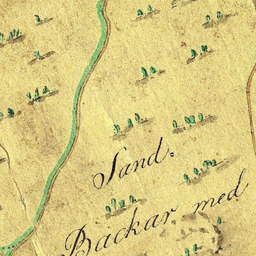 Sand=
Backar med